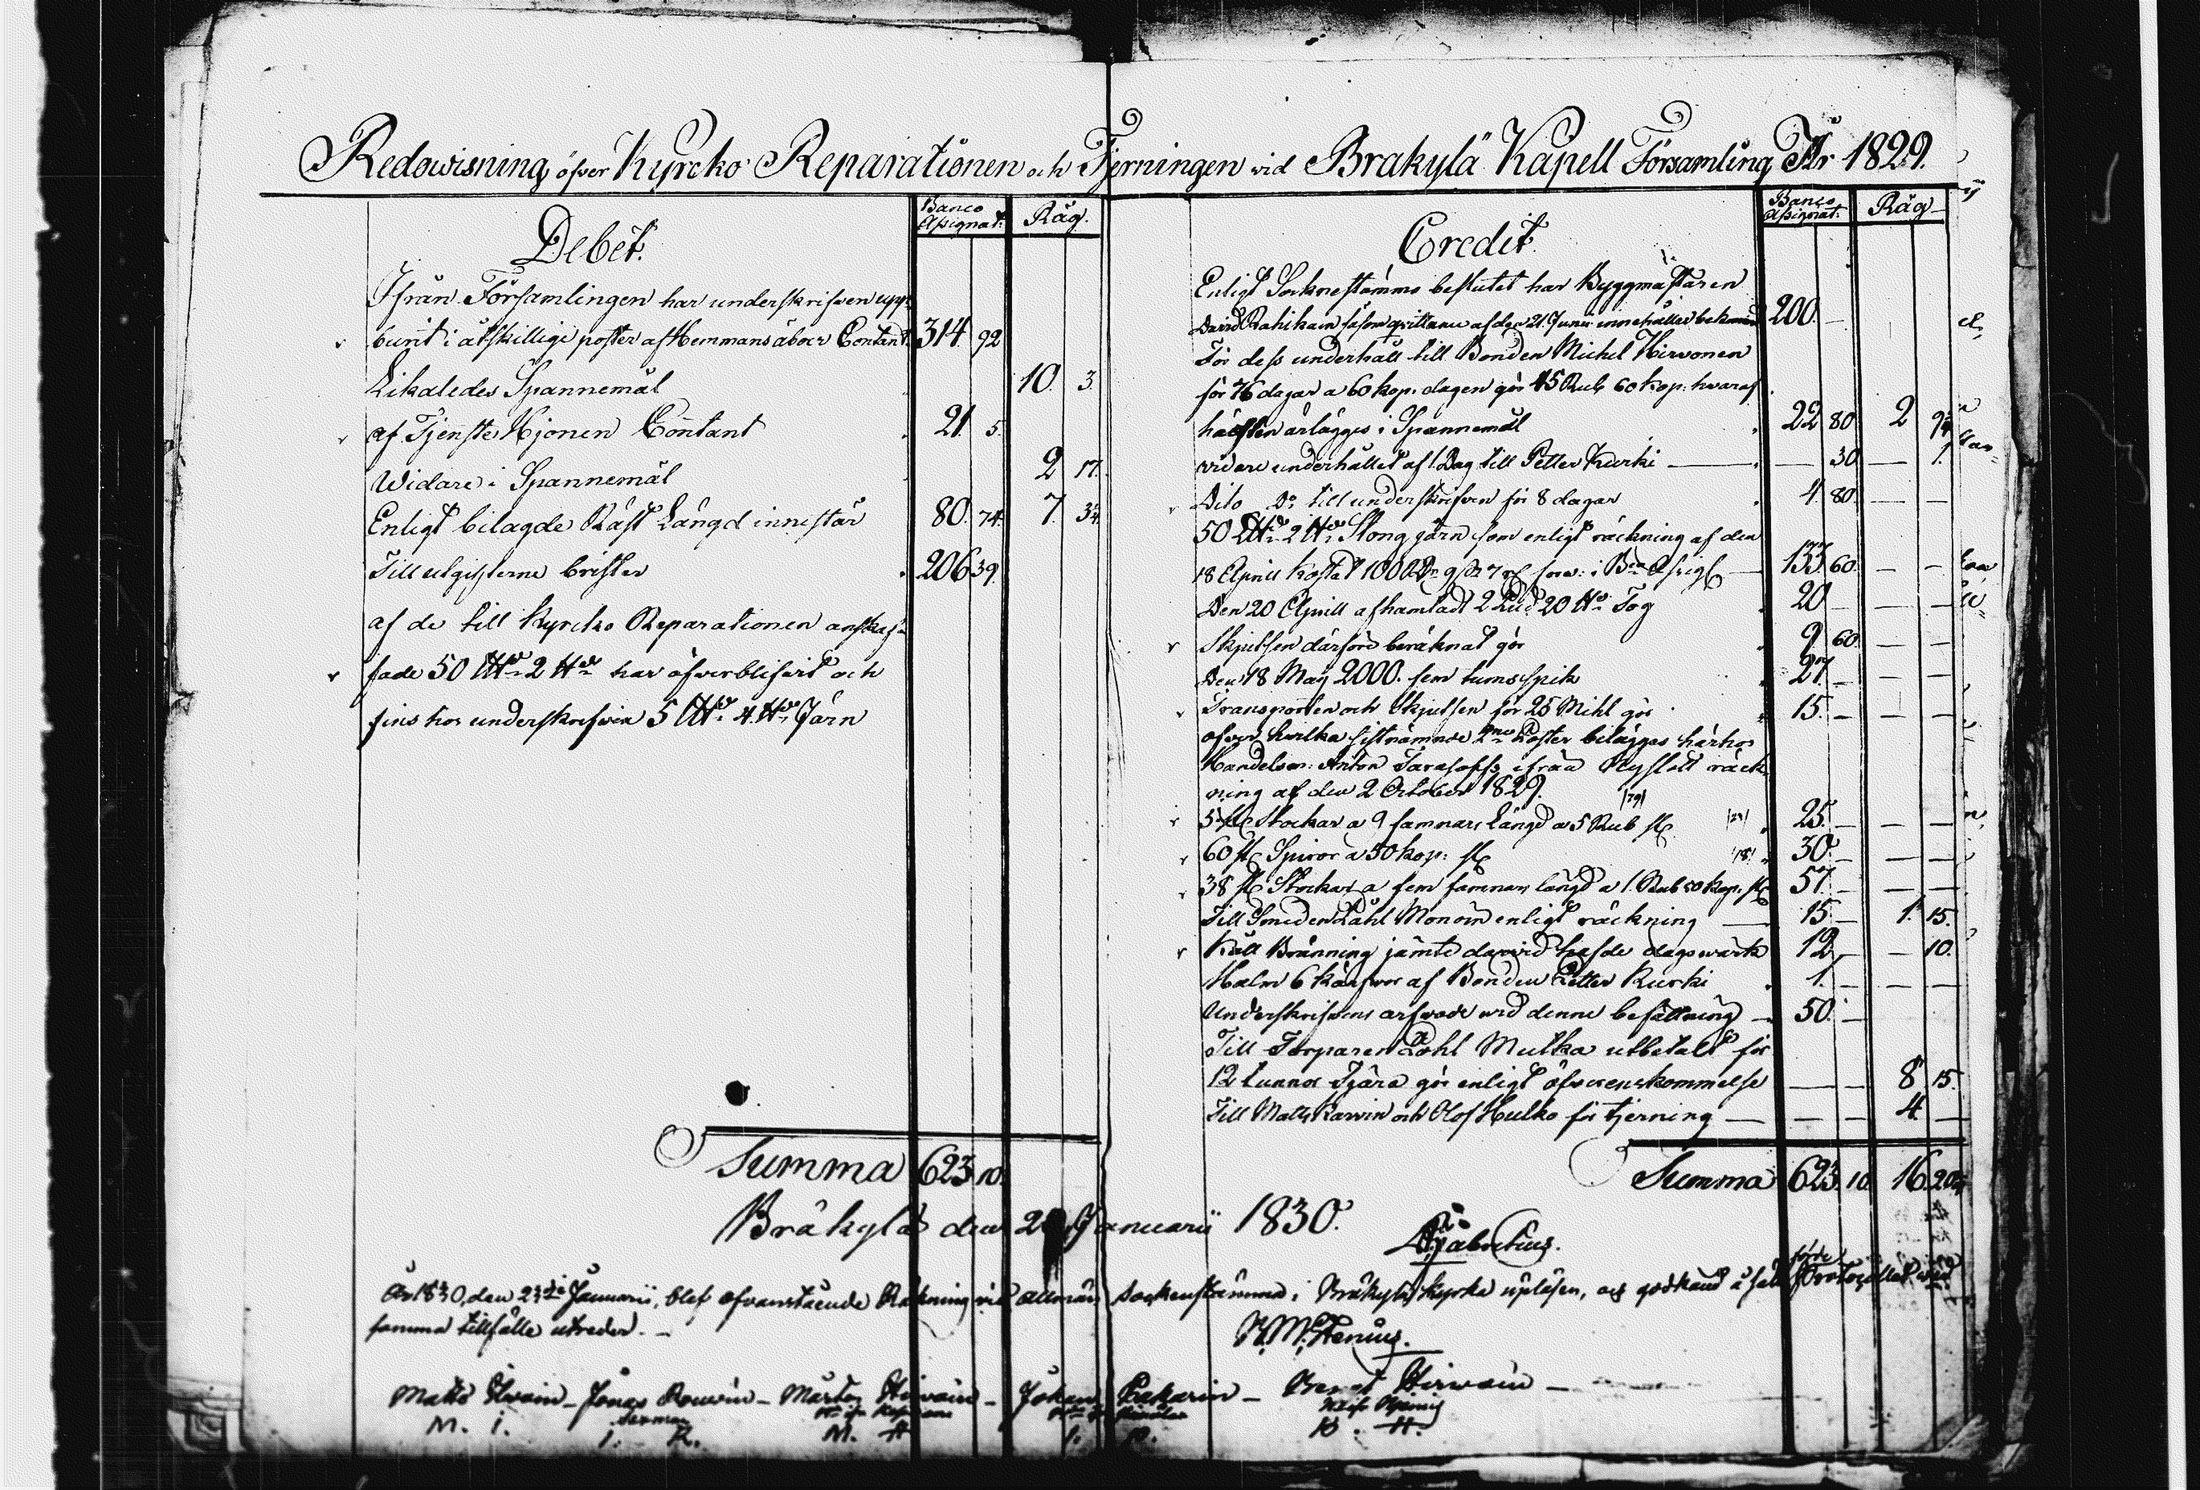 Redowisning öfver Kyrcko Reparationen och Tjerningen vid Bräkylä Kapell Församling År 1829.
Debet.
Banco Assignat:
Råg.
Ifrån Församlingen har underskrifven upp
burit i åtskillige poster af Hemmans åboer Contant. 314. 92
Likaledes Spannemål 10. 3.
af Tjenste Hjonen Contant 21. 5.
Widare i Spannemål 2 17.
Enligt bilagde Räst Längd innestår 80. 74. 7. 3¾
Till utgifterne brister 206 39.
af de till Kyrcko Reparationen anskaf-
fade 50 L℔ 2 ℔ har öfverblifvit och
fins hos underskrifven 5 L℔ 4 ℔ Järn
Summa 623 10.
Credit
Banco Assignat:
Råg
Enligt Socknestämmo beslutet har Byggmästaren
David Rahikain såsom qvittance af den 21. Junii innehåller bekommit 200. —
För dess underhåll till Bonden Michel Hirvonen
för 76 dagar a 60 kop: dagen gör 45 Rub 60 kop: hvaraf
hälften ärlägges i Spannemål 22 80 2 9¾
vidare underhållet af 1 Dag till Petter Kurki — — 30 — 1.
Dito Do till underskrifven för 8 dagar 4 80 — —
50 L℔ 2 ℔ Stong järn som enligt räckning af den
18 Aprill kostat 133 60. — —
Den 20 Aprill afhamtadt 2 Lod 20 ℔ Tog 20 — — —
Skjutsen därföre beräknat gör 9 60. — —
Den 18 Maij 2000. fem tums spik 27. — — —
Transporten och Skjutsen för 25 Mihl gör 15. — — —
öfver hvilka sistnämnde poster bilägges härhos
Handelsm: Anton Tarasoffs ifrån Nyslott räck
ning af den 2 October 1829.
5 st Stockar a 9 famnars längd a 5 Rub st 25. — — —
60 st Spiror a 50 kop: st 30. — — —
38 st Stockar a fem famnars längd a 1. Rub 50 kop: st 57. — — —
Till Smeden Påhl Monoin enligt räckning 15 — 1. 15.
Kåll Bränning jämte dervid hafde dagswärk 12. — — 10.
Halm 6 kärfvor af Bonden Petter Kurki 1. — — —
Underskrifvens arfvode vid denne befattning — 50. —
Till Torparen Påhl Mutka utbetalt för
12 tunnor Tjära gör enligt öfverenskommelse — — 8 15.
Till Matts Karvin och Olof Hulko för tjerning — — — 4. —
Summa 623. 10. 16. 20¾
Bräkylä den Januarii 1830.
År 1830, den 23die Januarii, blef ofvanstående Räkning vid allmän Sockenstämma i Bräkylä kyrka upläsen, och godkänd
samma tillfälle utreder. —
Matts M. I.
Jonas I. R.
Mårten Hirvoin M. H
Johan I. P.
Bengt Hirvoin B. H.